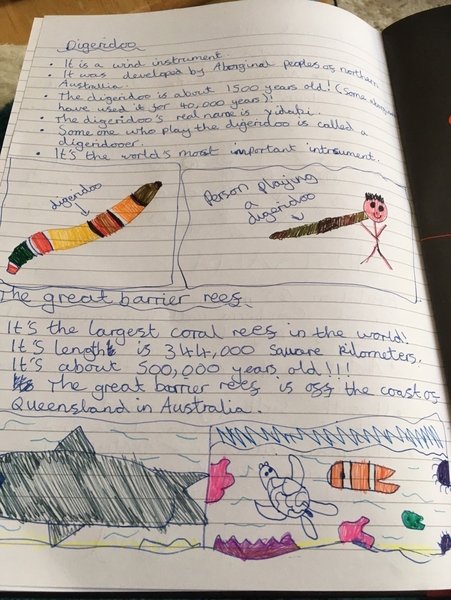 Digeridoo
• It is a wind instrument.
• It was developed by Aborginal peoples of northern
Australia.
• The digeridoo is about 1500 years old! (Some
have used it for 40,000 years)!
• The digeridoo's real name is Yidaki.
• Some one who play the digeridoo is called a
digeridooer.
• It's the world's most important intrument.
digeridoo
Person playing
a
digeridoo
The great barrier reef.
It's the largest coral reef in the world!
It's length is 344,000 square kilometers.
It's about 500,000 years old!!!
The great barrier reef is off the coast of
Queensland in Australia.